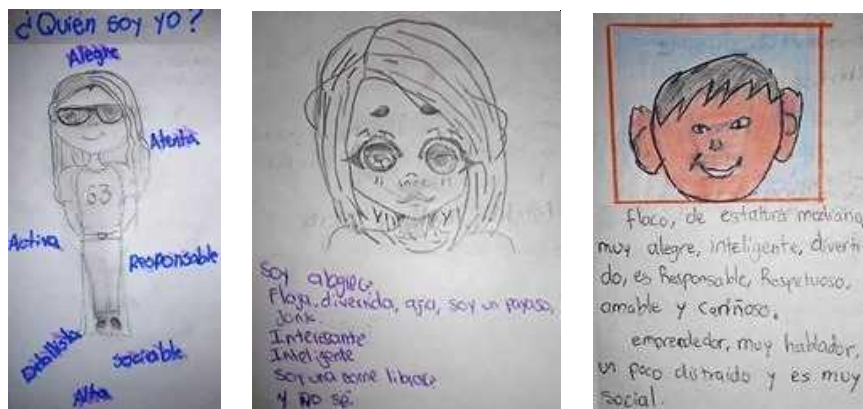 ¿Quién soy yo?
Alegre
Atenta
63
Activa
Responsable
Detallista
sociable
Alta
Soy alegre
Floja, divertida, aja, soy un payaso,
Interesante
Inteligente
Soy una come libros
y no se
flaco, de estatura mediana,
muy alegre, inteligente, diverti
do, es Responsable, Respetuoso,
amable y cariñoso.
emprendedor, muy hablador,
un poco distraido y es muy
social.